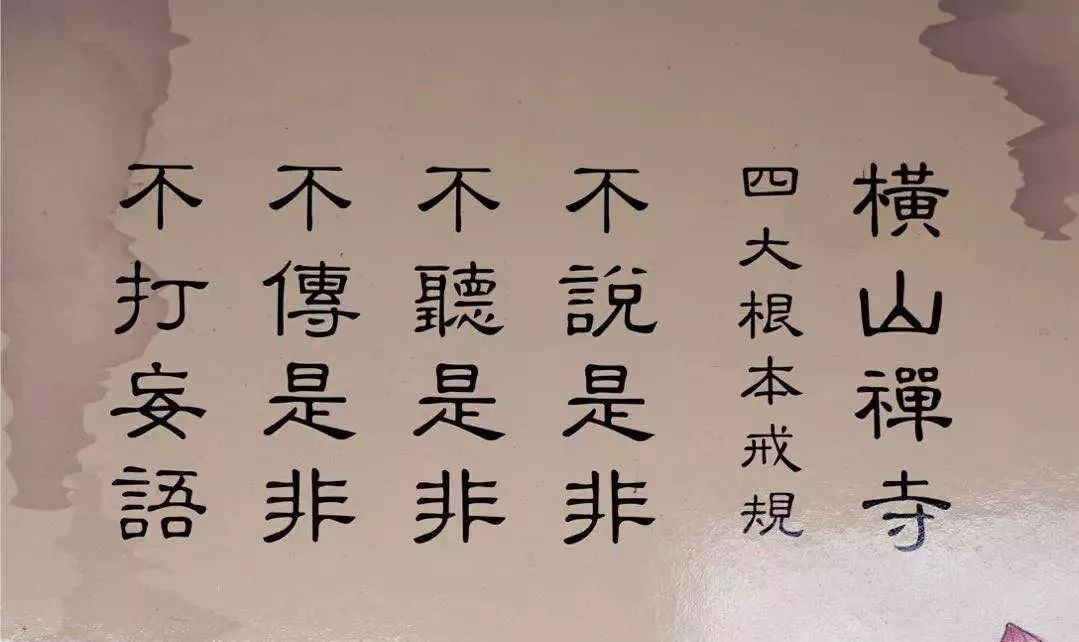 橫山禪寺
四大根本戒規
不說是非
不聽是非
不傳是非
不打妄語